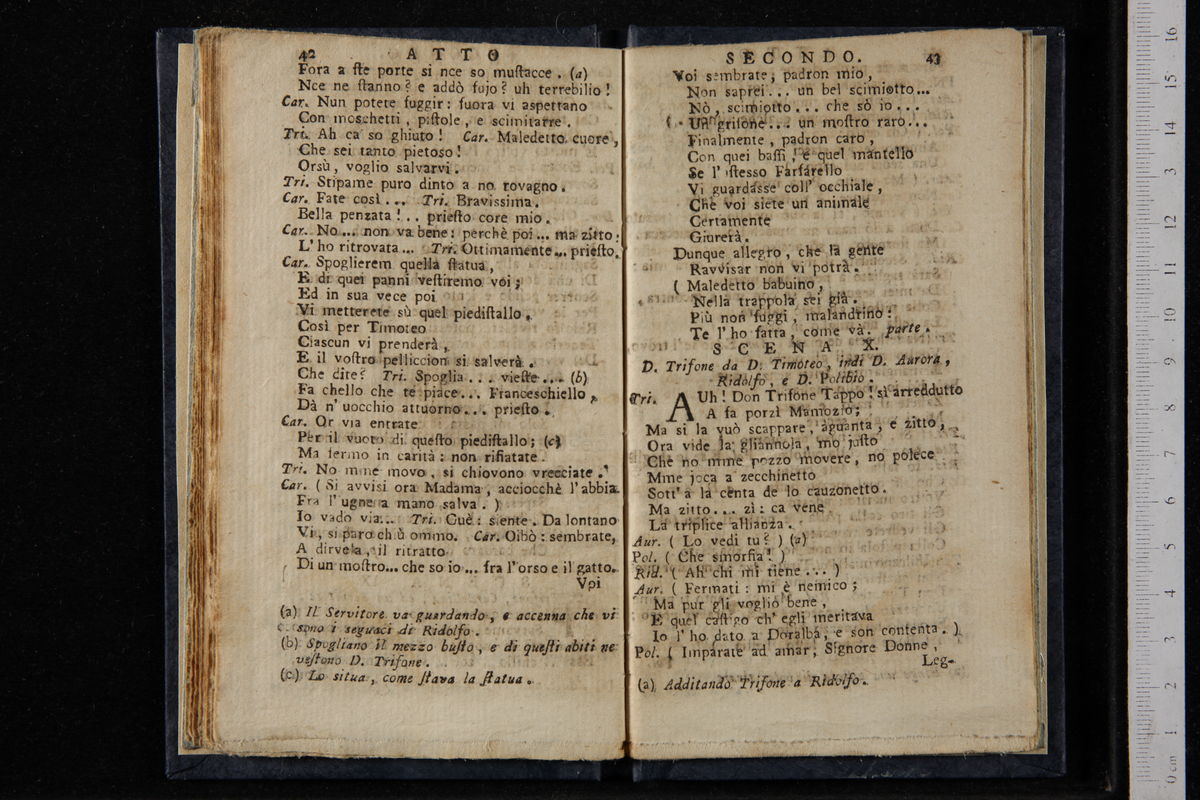 42 ATTO
Fora a ſte porte si nce so muſtacce. (a)
Nce ne ſtanno? e addò fujo? uh terrebilio!
Car. Nun potete fuggir: fuora vi aspettano
Con moschetti, piſtole, e scimitarre.
Tri. Ah ca so ghiuto! Car. Maledetto cuore,
Che sei tanto pietoso!
Orsù, voglio salvarvi.
Tri. Stipame puro dinto a no rovagno.
Car. Fate così... Tri. Bravissima.
Bella penzata!.. prieſto core mio.
Car. No... non va bene: perchè poi... ma zitto:
L'ho ritrovata... Tri. Ottimamente... prieſto.
Car. Spoglierem quella ſtatua,
E di quei panni veſtiremo voi;
Ed in sua vece poi
Vi metterete sù quel piediſtallo.
Così per Timoteo
Ciascun vi prenderà,
E il voſtro pelliccion si salverà.
Che dite? Tri. Spoglia... vieſte... (b)
Fa chello che te piace... Franceschiello,
Dà n'uocchio attuorno... prieſto.
Car. Or via entrate
Per il vuoto di queſto piediſtallo; (c)
Ma fermo in carità: non rifiatate.
Tri. No mme movo, si chiovono vrecciate.
Car. (Si avvisi ora Madama, acciocchè l'abbia
Fra l'ugne a mano salva.)
Io vado via... Tri. Guè: siente. Da lontano
Vi, si paro chiù ommo. Car. Oibò: sembrate,
A dirvela, il ritratto
Di un moſtro... che so io... fra l'orso e il gatto.
Voi
(a) Il Servitore va guardando, e accenna che vi
sono i seguaci di Ridolfo.
(b) Spogliano il mezzo buſto, e di queſti abiti ne
veſtono D. Trifone.
(c) Lo situa, come ſtava la ſtatua.
SECONDO. 43
Voi sembrate, padron mio,
Non saprei... un bel scimiotto...
Nò, scimiotto... che sò io...
Un grifone... un moſtro raro...
Finalmente, padron caro,
Con quei baffi, e quel mantello
Se l'iſtesso Farfarello
Vi guardasse coll'occhiale,
Chè voi siete un animale
Certamente
Giurerà.
Dunque allegro, che la gente
Ravvisar non vi potrà.
(Maledetto babuino,
Nella trappola sei già.
Più non fuggi, malandrino:
Te l'ho fatta, come và. parte.
SCENA X.
D. Trifone da D. Timoteo, indi D. Aurora,
Ridolfo, e D. Polibio.
Tri. AUh! Don Trifone Tappo! sì arreddutto
A fa porzì Mamozio;
Ma si la vuò scappare, aguanta, e zitto,
Ora vide la gliannola, mo juſto
Che no mme pozzo movere, no polece
Mme joca a zecchinetto
Sott'a la centa de lo cauzonetto.
Ma zitto... zì: ca vene
La triplice allianza.
Aur. (Lo vedi tu?) (a)
Pol. (Che smorfia!)
Rid. (Ah chi mi tiene...)
Aur. (Fermati: mi è nemico;
Ma pur gli voglio bene,
E quel caſtigo ch'egli meritava
Io l'ho dato a Doralba, e son contenta.)
Pol. (Imparate ad amar, Signore Donne,
Leg-
(a) Additando Trifone a Ridolfo.